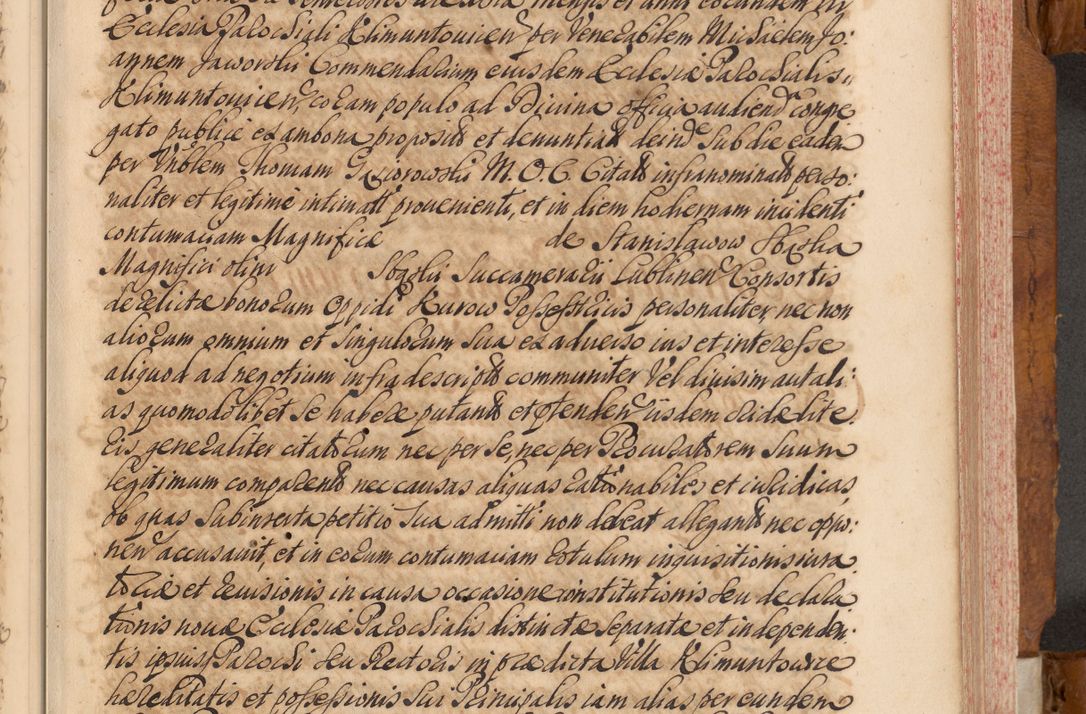 Ecclesia Parochiali Klimuntovien. per Venerabilem Michaelem Jo:
annem Jaworski Commendarium eiusdem Ecclesiæ Parochialis
Klimuntovien. coram populo ad Divina officia audiend. congre
gato publice ex ambona proposits et denuntiats deind. sub die eadem
per Vnblem Thomam Gasiorowski M. O. C. Citats infranominats perso:
naliter et legitime intimats provenienti, et in diem hodiernam incidenti
contumaciam Magnificæ de Stanislawow Sbąska
Magnifici olim Sbąski Succamerarii Lublinen. Consortis
derelictæ bonorum Oppidi Kurow Possessricis personaliter nec non
aliorum omnium et singulorum sua ex adverso ius et interesse
aliquod ad negotium infra descripts communiter vel divisim aut ali:
as quomodolibet se habere putants et osenden. iisdem eidæ lite
ris generaliter citatorum nec per se, nec per Procuratorem suum
legitimum comparents nec causas aliquas rationabiles et iuridicas
ob quas subinserta petitio sua admitti non debeat allegants nec oppo:
nen. accusavit, et in eorum contumaciam rotulum inquisitionis iura
toriæ et revisionis in causa occasione institutionis seu declara
tionis novæ Ecclesiæ Parochialis distinctæ separatæ et independen:
tis ipsius Parochi seu Rectoris in prædicta Villa Klimuntowice
hereditatis et possessionis sui Principalis iam alias per eundem